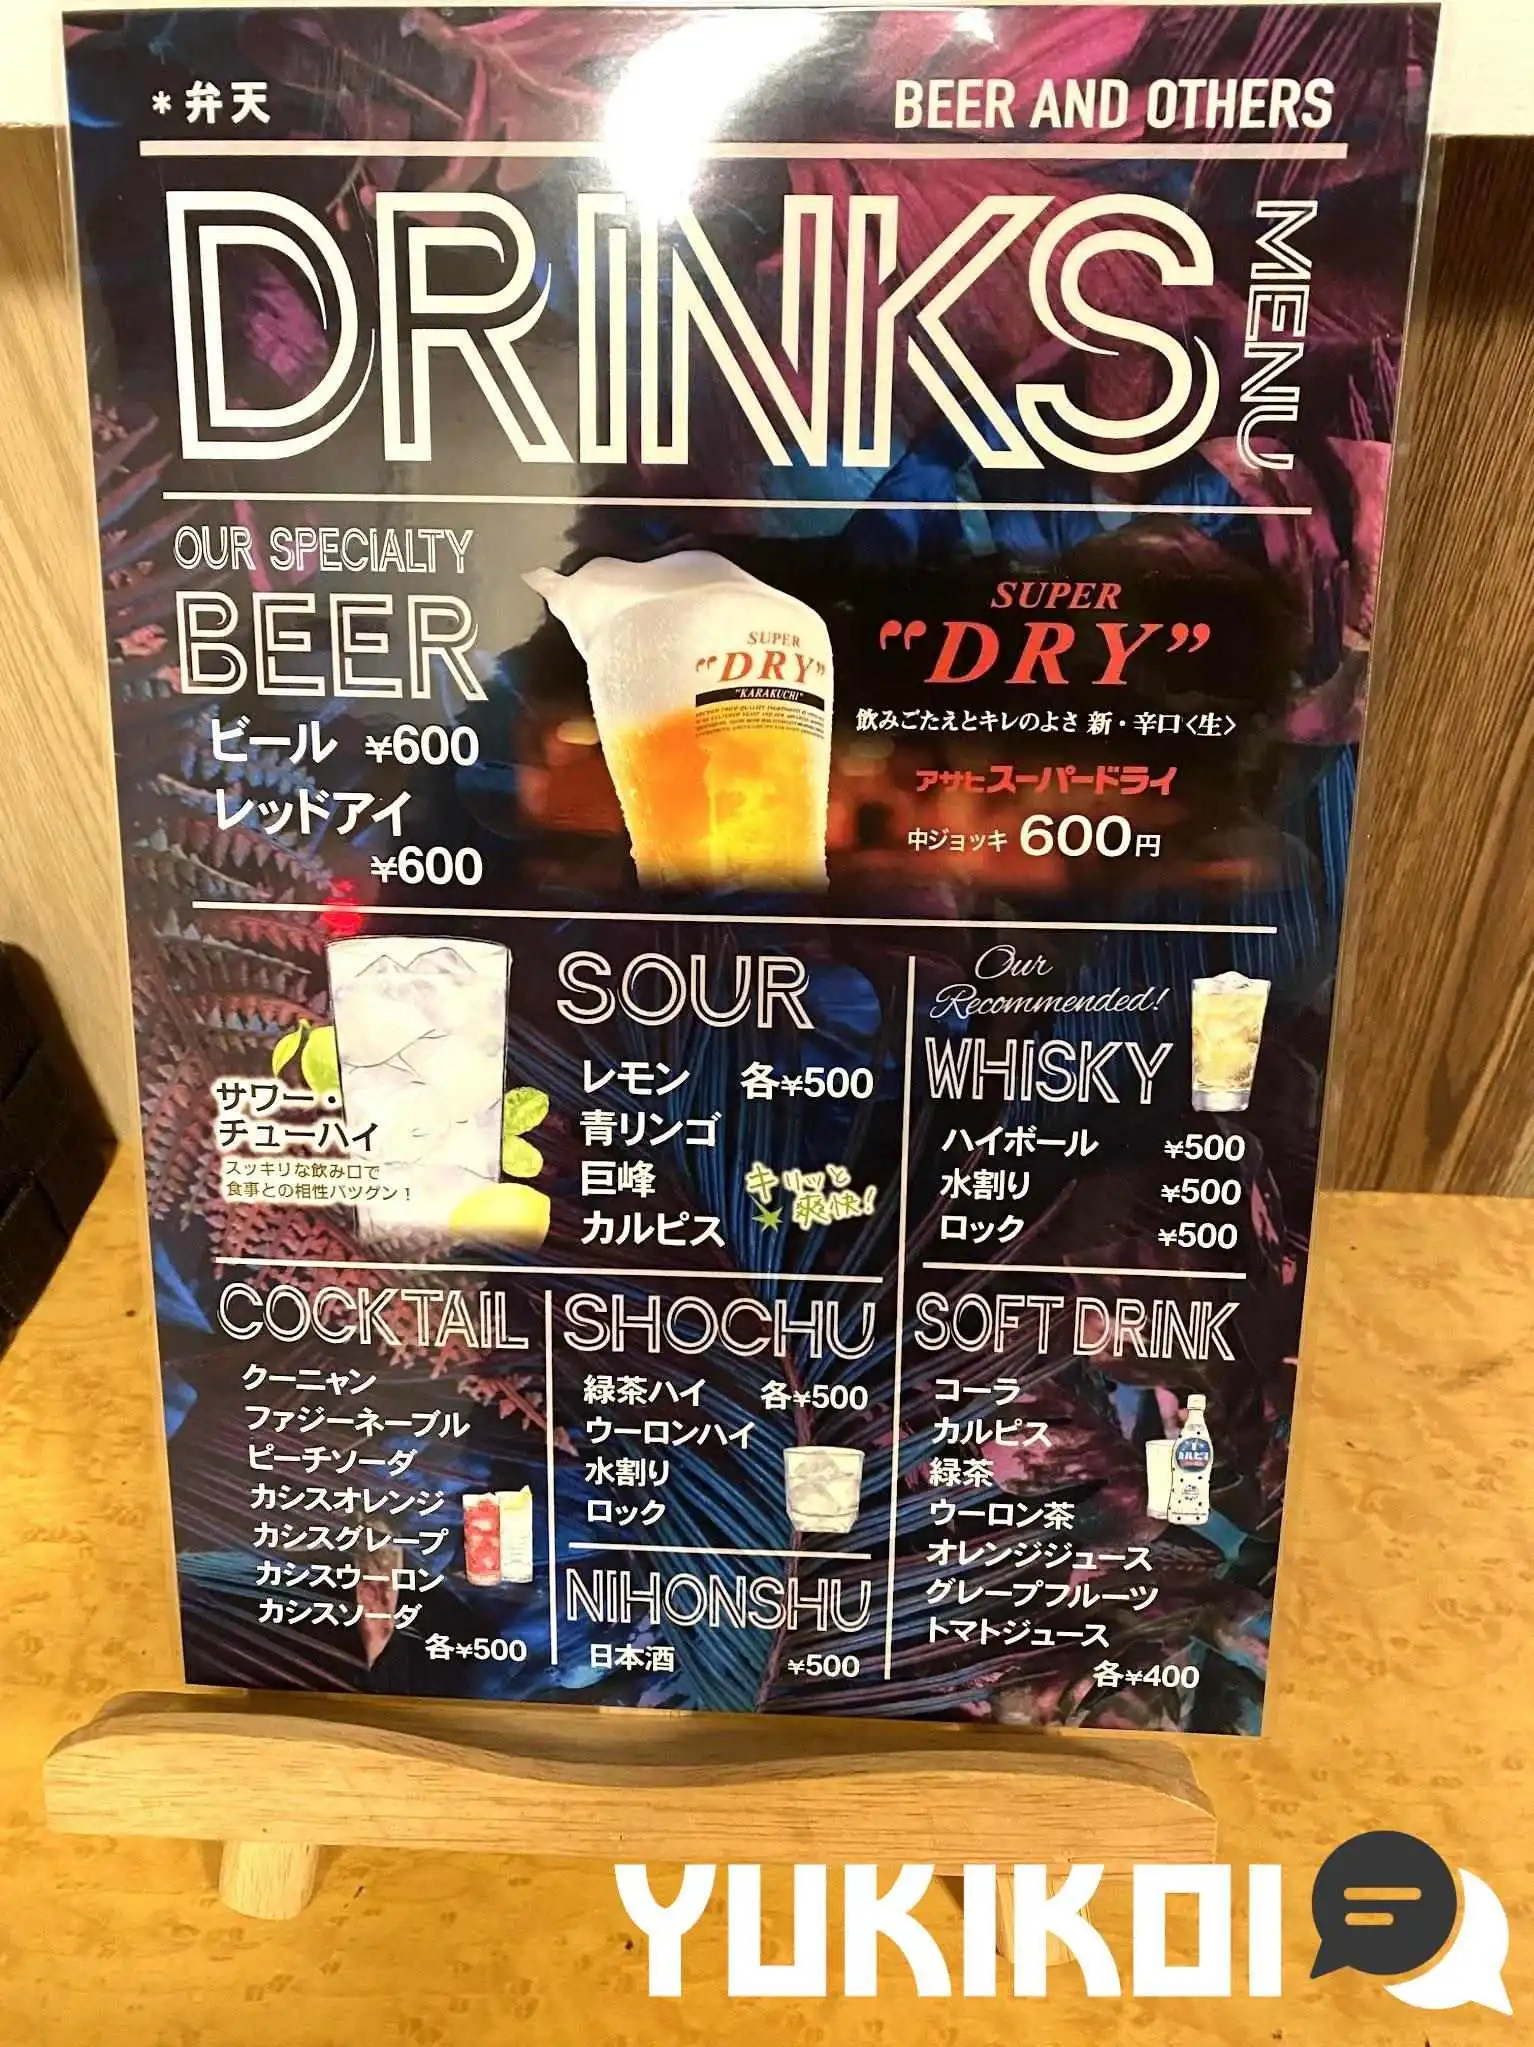 *弁天
BEER AND OTHERS
DRINKS
MENU
OUR SPECIALTY
BEER
ビール ¥600
レッドアイ
¥600
SUPER
"DRY"
"KARAKUCHI"
SUPER
"DRY"
飲みごたえとキレのよさ 新・辛口〈生〉
アサヒスーパードライ
中ジョッキ 600円
サワー・
チューハイ
スッキリな飲み口で
食事との相性バツグン!
SOUR
レモン 各¥500
青リンゴ
巨峰
カルピス
キリッと
爽快!
Our
Recommended!
WHISKY
ハイボール ¥500
水割り ¥500
ロック ¥500
COCKTAIL
クーニャン
ファジーネーブル
ピーチソーダ
カシスオレンジ
カシスグレープ
カシスウーロン
カシスソーダ
各¥500
SHOCHU
緑茶ハイ 各¥500
ウーロンハイ
水割り
ロック
NIHONSHU
日本酒 ¥500
SOFT DRINK
コーラ
カルピス
緑茶
ウーロン茶
オレンジジュース
グレープフルーツ
トマトジュース
各¥400
カルピス
YUKIKOI